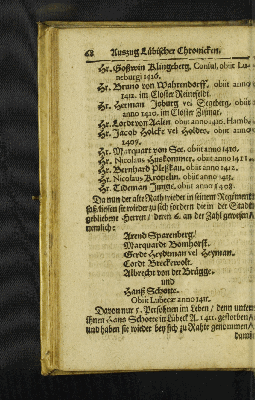 68 Auszug Lübischer Chronicken,
Hr. Goßwin Klingeberg, Consul, obiit Lu-
neburgi 1416.
Hr. Bruno von Wahrendorff, obiit anno
1412. im Closter Reinfeldt.
Hr. Herman vel Segeberg, obiit
anno 1410. im Closter
Hr. obiit anno 1410. Hamb.
Hr. Jacob Holcke vel Holdeo, obiit anno
1409.
Hr. Marquart von See. obiit anno 1410.
Hr. Nicolaus obiit anno 1411.
Hr. Bernhard Pleßkau, obiit anno 1412.
Hr. Nicolaus Kropelin, obiit anno 1413.
Hr. Tideman Junge, obiit anno 1408.
Da nun der alte Rath wieder in seinem Regiment
saß, liessen sie wieder zu sich fordern die in der Stadt
gebliebene Herren / deren 6. an der Zahl gewesen /
nemlich:
Arend Sparenberg.
Marquardt Bomhorst.
Gerdt Heydtman vel Heyman.
Cordt Breckewolt.
Albrecht von der Brügge.
und
Hanß Schotte.
Obiit Lubecæ anno 1411.
Davon nur 5. Persohnen im Leben / denn unter
ihnen Hans Schotte in Lübeck A. 1411. gestorben /
und haben sie wieder bey sich zu Rahte genommen /